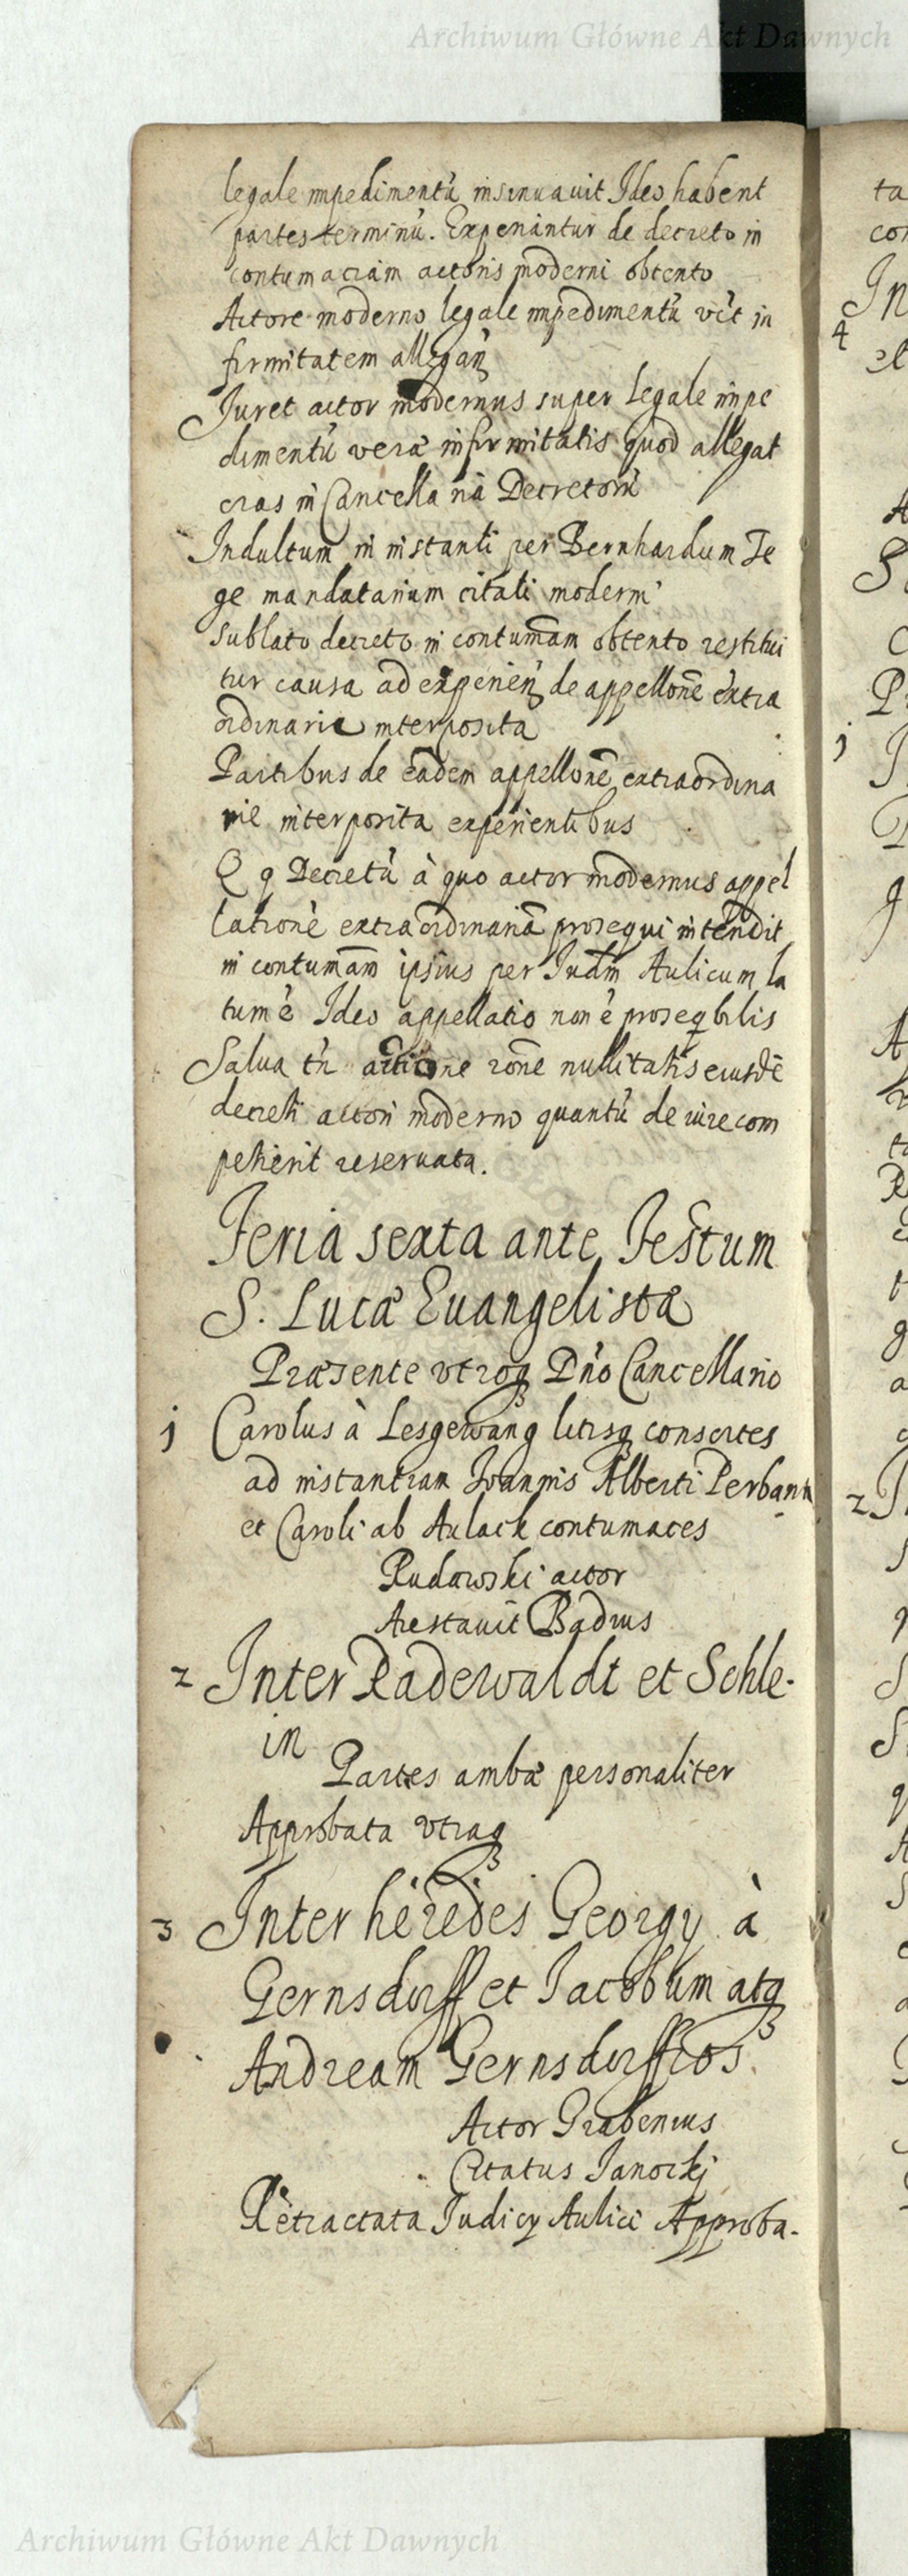 Archiwum Główne Akt Dawnych
legale impedimentũ insinuauit Ideo habent
partes terminũ. Experiantur de decreto in
contumaciam actoris moderni obtento
Actore moderno legale impedimentũ vĩt in
firmitatem allegañ
Iuret actor modernus super legale impe
dimentũ veræ infirmitatis quod allegat
cras in Cancellaria Decretorũ
Indultum in instanti per Bernhardum Te
ge mandatarium citati moderni
Sublato decreto in contumãm obtento restitui
tur causa ad experieñ de appellonẽ extra
ordinarie interposita
Partibus de eadem appellonẽ extraordina
rie interposita experientibus
Q q Decretũ à quo actor modernus appel
lationẽ extraordinariã prosequi intendit
in contumãm ipsius per Iudm̃ Aulicum la
tum ẽ Ideo appellatio non ẽ proseq̃bilis
Salua tñ actione rõne nullitatis eiusdẽ
decreti actori moderno quantũ de iure com
petierit reseruata.
Feria sexta ante Festum
S. Lucæ Euangelistæ
Præsente vtroq3 Dño Cancellario
j Carolus à Lesgewang litisq3 consortes
ad instantiam Ioannis Alberti Perbant
et Caroli ab Aulack contumaces
Rudowski actor
Arestauit Badius
2 Inter Radewaldt et Schle-
in
Partes ambæ personaliter
Approbata vtraq3
3 Inter heredes Georgy à
Gernsdorff et Iacobum atq3
Andream Gernsdorffios
Actor Grabenius
Citatus Janockj
Retractata Iudicy Aulici Approba-
ta
con
In
4
el
j
2
Archiwum Główne Akt Dawnych